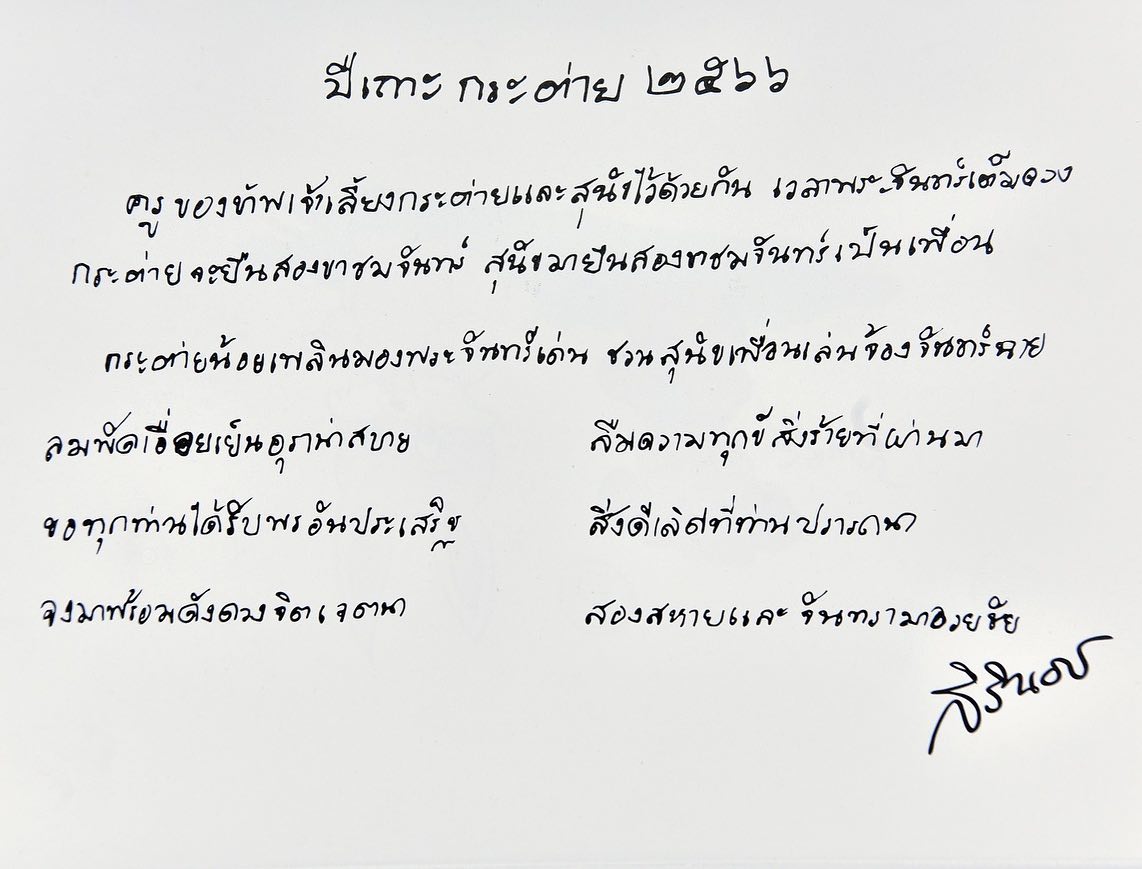 ปีเถาะ กระต่าย ๒๕๖๖
ครูของข้าพเจ้าเลี้ยงกระต่ายและสุนัขไว้ด้วยกัน เวลาพระจันทร์เต็มดวง
กระต่ายจะยืนสองขาชมจันทร์ สุนัขมายืนสองขาชมจันทร์เป็นเพื่อน
กระต่ายน้อยเพลินมองพระจันทร์เด่น ชวนสุนัขเพื่อนเล่นจ้องจันทร์ฉาย
ลมพัดเฉื่อยเย็นอุราน่าสบาย ลืมความทุกข์สิ่งร้ายที่ผ่านมา
ขอทุกท่านได้รับพรอันประเสริฐ สิ่งดีเลิศที่ท่านปรารถนา
จงมาพร้อมดังดวงจิตเจตนา สองสหายและจันทรามาอวยชัย
สิรินธร